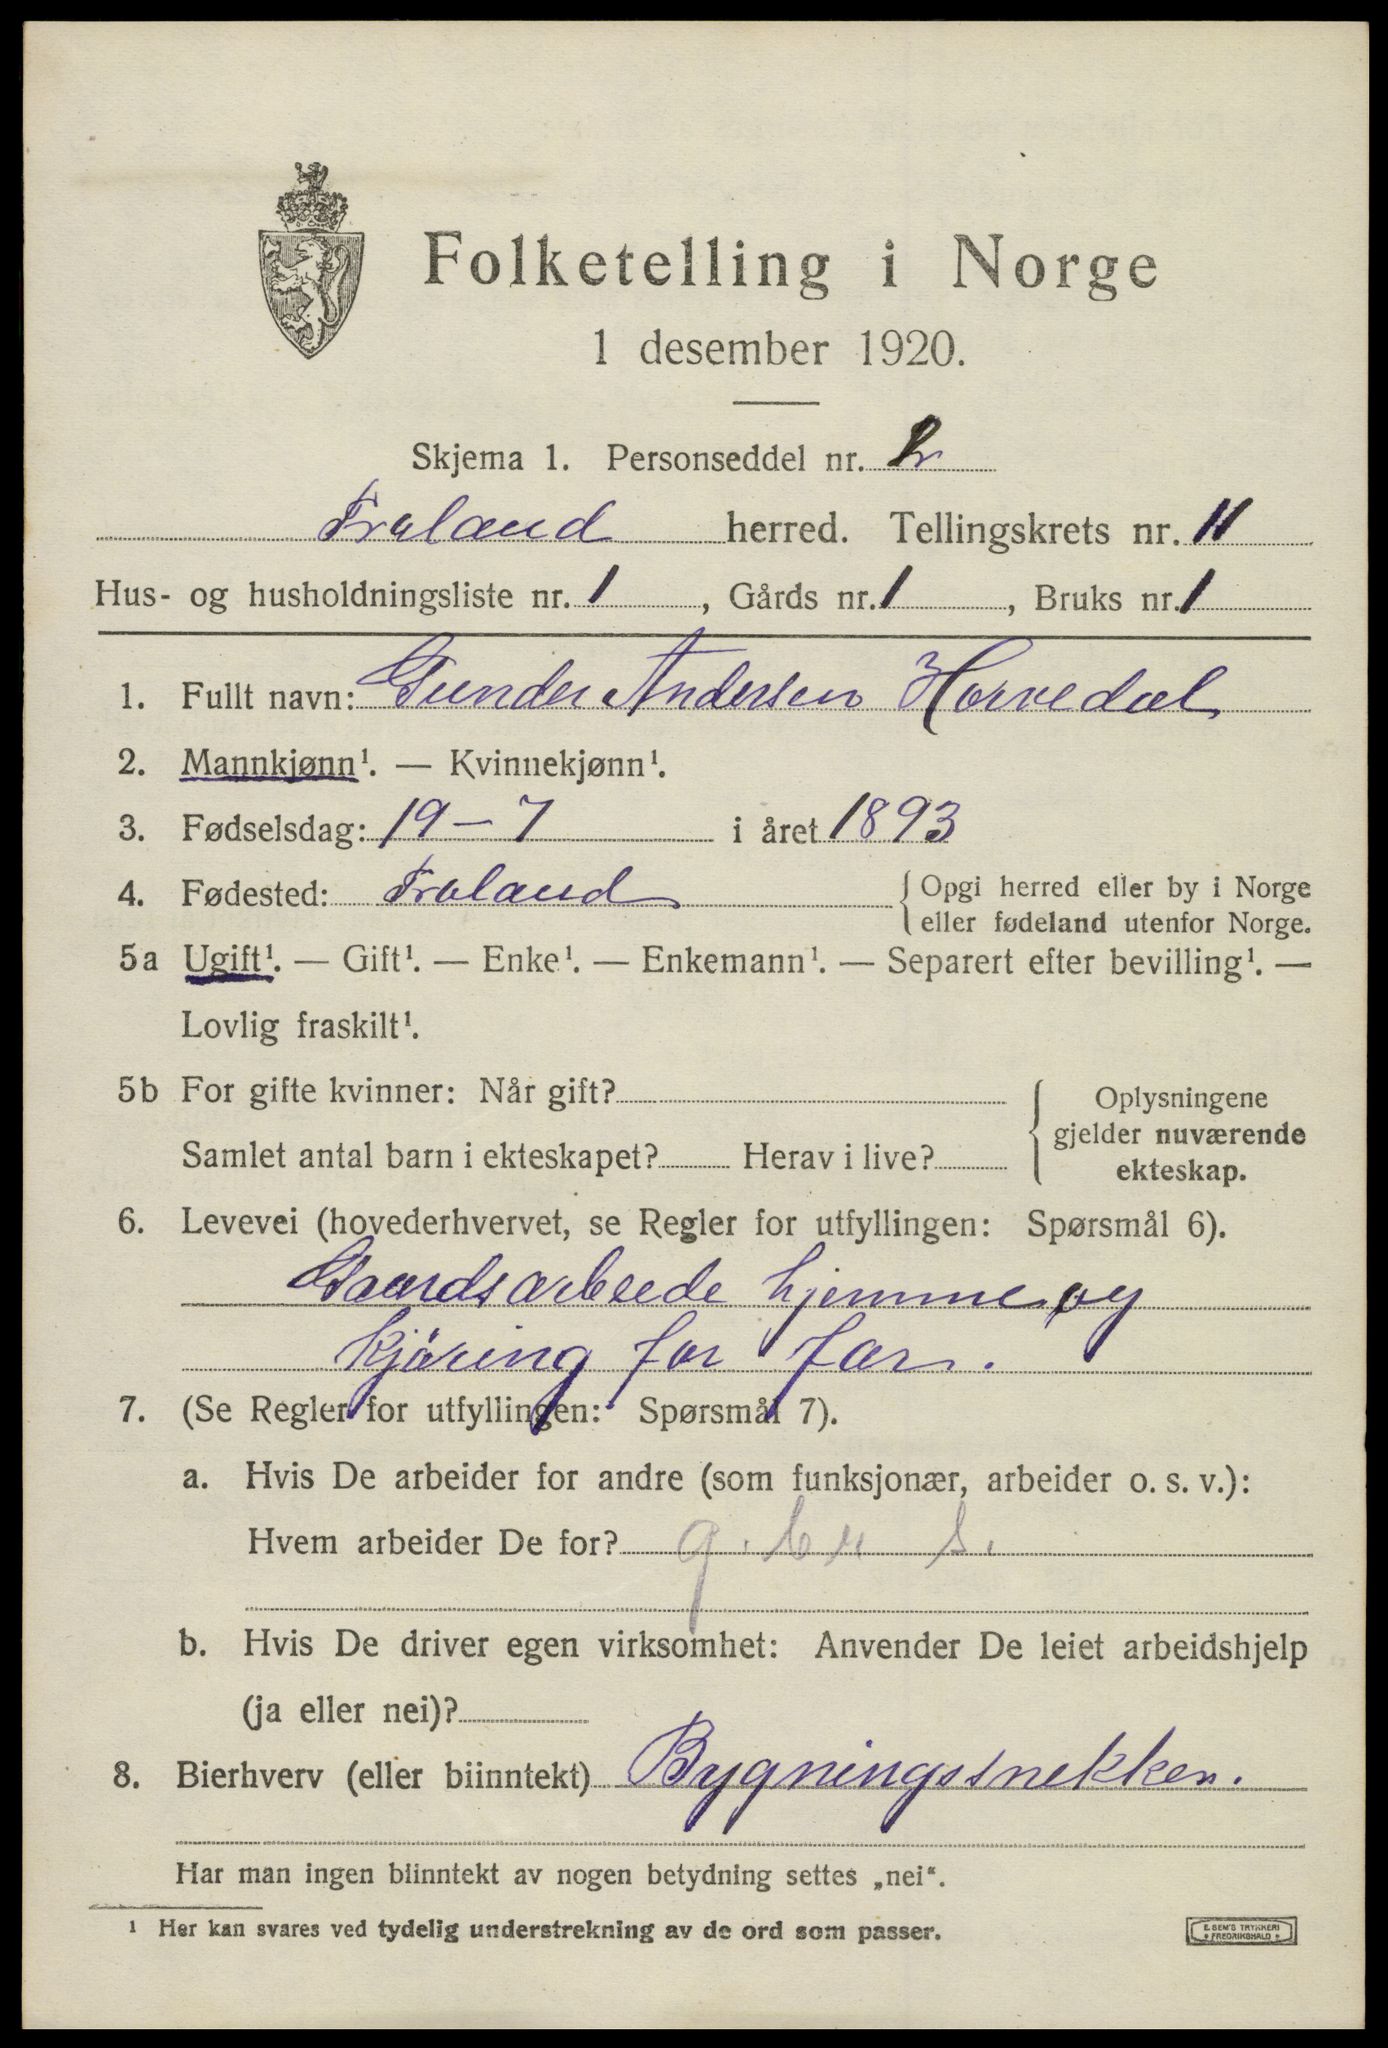 Folketelling i Norge
1 desember 1920.
Skjema 1. Personseddel nr. 2
Froland herred. Tellingskrets nr. 11
Hus- og husholdningsliste nr. 1, Gårds nr. 1, Bruks nr. 1
1. Fullt navn: Gunder Andersen Hovedal
2. Mannkjønn¹. — Kvinnekjønn¹.
3. Fødselsdag: 19 – 7 i året 1893
4. Fødested: Froland { Opgi herred eller by i Norge
eller fødeland utenfor Norge.
5a Ugift¹. — Gift¹. — Enke¹. — Enkemann¹. — Separert efter bevilling¹. —
Lovlig fraskilt¹.
5b For gifte kvinner: Når gift?
Samlet antal barn i ekteskapet? Herav i live?
{ Oplysningene
gjelder nuværende
ekteskap.
6. Levevei (hovederhvervet, se Regler for utfyllingen: Spørsmål 6).
Gaardsarbeide hjemme og
kjöring for far.
7. (Se Regler for utfyllingen: Spørsmål 7).
a. Hvis De arbeider for andre (som funksjonær, arbeider o. s. v.):
Hvem arbeider De for?
b. Hvis De driver egen virksomhet: Anvender De leiet arbeidshjelp
(ja eller nei)?
8. Bierhverv (eller biinntekt) Bygningssnekker.
Har man ingen biinntekt av nogen betydning settes „nei“.
¹ Her kan svares ved tydelig understrekning av de ord som passer.
E. SEM'S TRYKKERI
FREDRIKSHALD